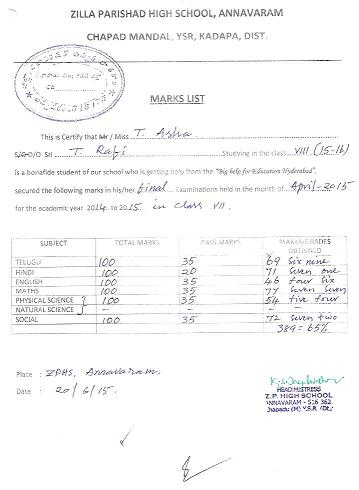 ZILLA PARISHAD HIGH SCHOOL, ANNAVARAM
CHAPAD MANDAL, YSR, KADAPA, DIST.
MARKS LIST
This is Certify that Mr / Miss T. Asha
S/O-D/O Sri T. Rafi Studying in the class VIII (15-16)
is a bonafide student of our school who is getting help from the "Big help for Education Hyderabad",
secured the following marks in his/her final Examinations held in the month of April-2015
for the academic year 2014 to 2015 in class VII.
SUBJECT TOTAL MARKS PASS MARKS MARKS/GRADES OBTAINED
TELUGU 100 35 69 six nine
HINDI 100 20 71 seven one
ENGLISH 100 35 46 four six
MATHS 100 35 77 seven seven
PHYSICAL SCIENCE 100 35 54 five four
NATURAL SCIENCE - - -
SOCIAL 100 35 72 seven two
389 = 65%
Place : ZPHS, Annavaram.
Date : 20/6/15.
HEADMISTRESS
Z.P. HIGH SCHOOL
ANNAVARAM - 516 362
Chapadu (M) Y.S.R (Dt.)